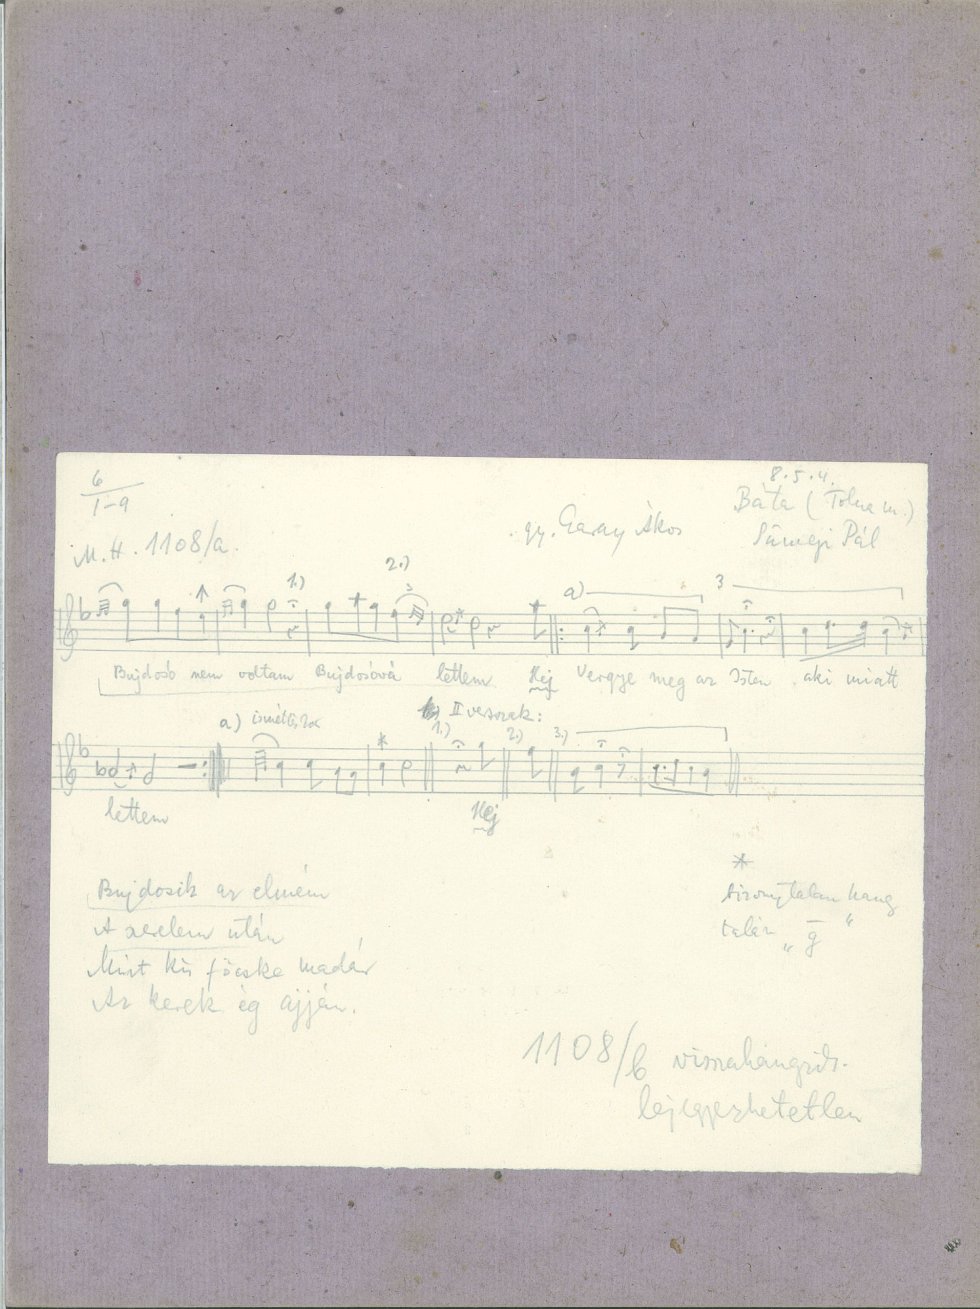 6
1-9
8.5.4.
Báta (Tolna m.)
gy. Garay Ákos
Pál
M.H. 1108/a.
1.) 2.) 3
a) 3
Bujdosó nem voltam Bujdosóvá lettem Hej Vergye meg az Isten aki miatt
a) II versszak:
1.) 2.) 3.)
lettem Hej
Bujdosik az elmém
A szerelem után
Mint kis föcske madár
Az kerek ég ajján.
*
bizonytalan hang
talán „g"
1108/b visszahangzás.
lejegyezhetetlen